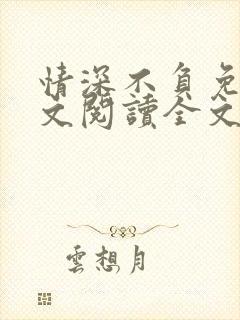 情深不負免
文閱讀全文
雲想月